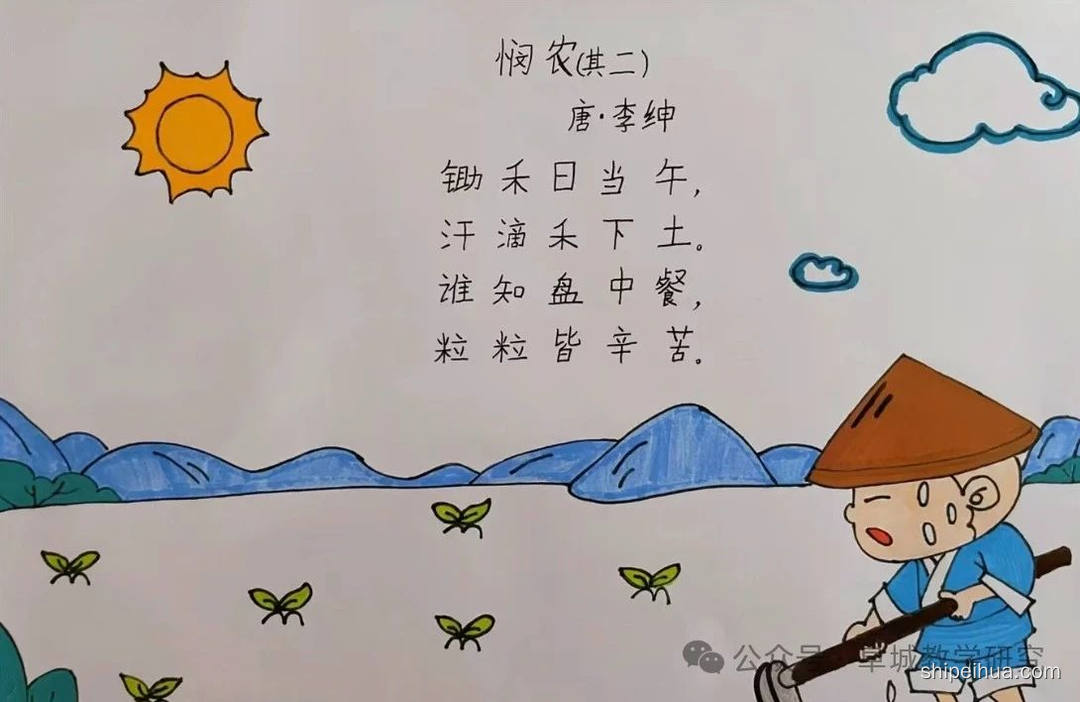 悯农(其二)
唐·李绅
锄禾日当午,
汗滴禾下土。
谁知盘中餐,
粒粒皆辛苦。
公众号 堂城教学研究
shipeihua.com